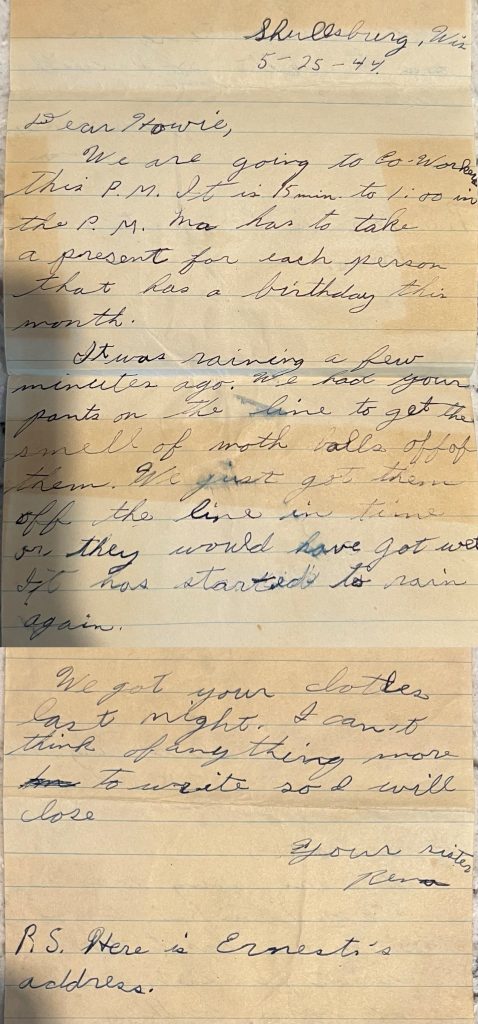 Shullsburg, Wis
5-25-44.
Dear Howie,
We are going to Co-Workers
this P.M. It is 15 min. to 1:00 in
the P.M. Ma has to take
a present for each person
that has a birthday this
month.
It was raining a few
minutes ago. We had your
pants on the line to get the
smell of moth balls off of
them. We just got them
off the line in time
or they would have got wet
It has started to rain
again.
We got your clothes
last night. I can't
think of anything more
to write so I will
close
Your sister
Rena
P.S. Here is Ernest's
address.